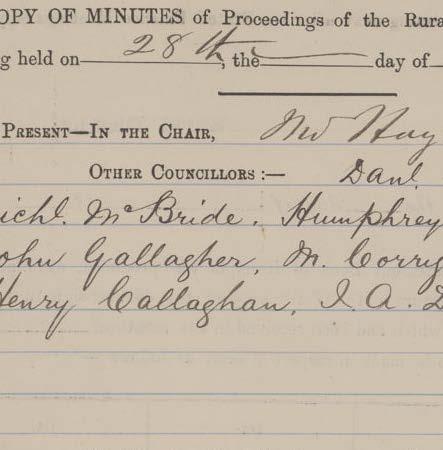 OPY OF MINUTES of Proceedings of the Rura
g held on 28th, the day of
PRESENT—IN THE CHAIR, Mr Hay
OTHER COUNCILLORS :— Danl.
ichl. McBride, Humphrey
ohn Gallagher, M. Corrig
Henry Callaghan, J. A. D